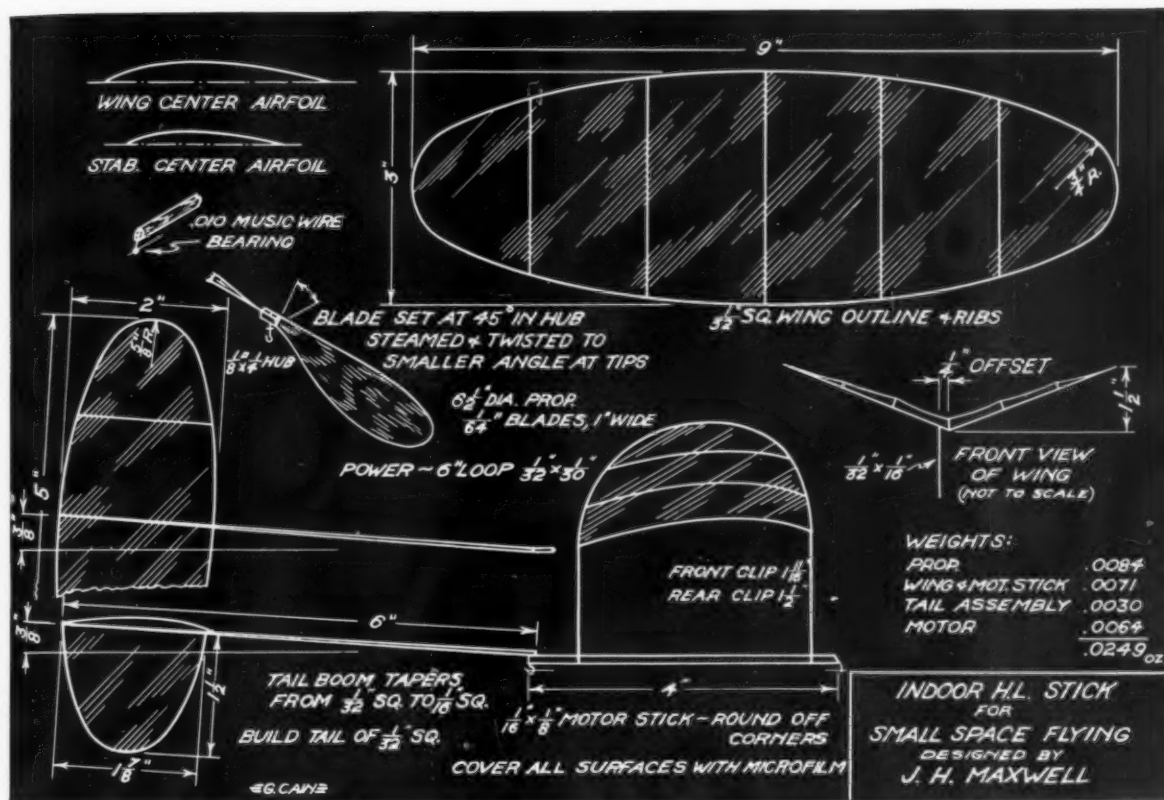 WING CENTER AIRFOIL
STAB. CENTER AIRFOIL
.010 MUSIC WIRE
BEARING
9"
3"
3/4" R.
1/32" SQ. WING OUTLINE & RIBS
2"
5/8" R.
5"
3/8"
BLADE SET AT 45° IN HUB
STEAMED & TWISTED TO
SMALLER ANGLE AT TIPS
1/8 x 1/4 HUB
6 1/2" DIA. PROP.
1/64" BLADES, 1" WIDE
POWER ~ 6" LOOP 1/32" x 1/30"
1/4" OFFSET
1 1/2"
1/32" x 1/16"
FRONT VIEW
OF WING
(NOT TO SCALE)
FRONT CLIP 1 11/16"
REAR CLIP 1 1/2"
WEIGHTS:
PROP. .0084
WING & MOT. STICK .0071
TAIL ASSEMBLY .0030
MOTOR .0064
.0249 OZ.
3/8"
6"
1 1/2"
1 7/8"
TAIL BOOM TAPERS
FROM 1/32" SQ. TO 1/16" SQ.
BUILD TAIL OF 1/32" SQ.
4"
1/16" x 1/8" MOTOR STICK - ROUND OFF
CORNERS
COVER ALL SURFACES WITH MICROFILM
G. CAIN
INDOOR H.L. STICK
FOR
SMALL SPACE FLYING
DESIGNED BY
J. H. MAXWELL